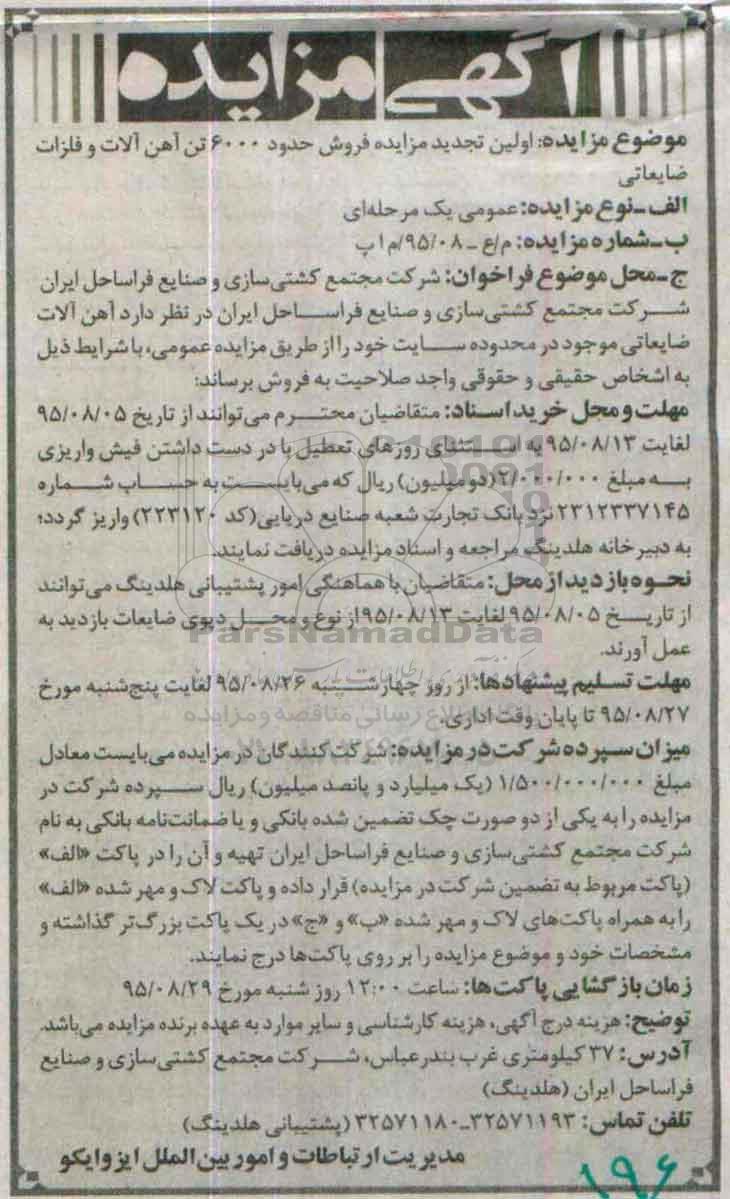 آگهی مزایده
موضوع مزایده: اولین تجدید مزایده فروش حدود ۶۰۰۰ تن آهن آلات و فلزات
ضایعاتی
الف-نوع مزایده: عمومی یک مرحله‌ای
ب-شماره مزایده: م/ع - ۹۵/۰۸/م ا پ
ج-محل موضوع فراخوان: شرکت مجتمع کشتی‌سازی و صنایع فراساحل ایران
شرکت مجتمع کشتی‌سازی و صنایع فراساحل ایران در نظر دارد آهن آلات
ضایعاتی موجود در محدوده سایت خود را از طریق مزایده عمومی، با شرایط ذیل
به اشخاص حقیقی و حقوقی واجد صلاحیت به فروش برساند:
مهلت و محل خرید اسناد: متقاضیان محترم می‌توانند از تاریخ ۹۵/۰۸/۰۵
لغایت ۹۵/۰۸/۱۳ به استثنای روزهای تعطیل با در دست داشتن فیش واریزی
به مبلغ ۲/۰۰۰/۰۰۰ (دو میلیون) ریال که می‌بایست به حساب شماره
۲۳۱۲۳۳۷۱۴۵ نزد بانک تجارت شعبه صنایع دریایی (کد ۲۲۳۱۲۰) واریز گردد؛
به دبیرخانه هلدینگ مراجعه و اسناد مزایده دریافت نمایند.
نحوه بازدید از محل: متقاضیان با هماهنگی امور پشتیبانی هلدینگ می‌توانند
از تاریخ ۹۵/۰۸/۰۵ لغایت ۹۵/۰۸/۱۳ از نوع و محل دپوی ضایعات بازدید به
ParsNamadData
عمل آورند.
مهلت تسلیم پیشنهادها: از روز چهارشنبه ۹۵/۰۸/۲۶ لغایت پنج‌شنبه مورخ
۹۵/۰۸/۲۷ تا پایان وقت اداری.
میزان سپرده شرکت در مزایده: شرکت‌کنندگان در مزایده می‌بایست معادل
مبلغ ۱/۵۰۰/۰۰۰/۰۰۰ (یک میلیارد و پانصد میلیون) ریال سپرده شرکت در
مزایده را به یکی از دو صورت چک تضمین شده بانکی و یا ضمانت‌نامه بانکی به نام
شرکت مجتمع کشتی‌سازی و صنایع فراساحل ایران تهیه و آن را در پاکت «الف»
(پاکت مربوط به تضمین شرکت در مزایده) قرار داده و پاکت لاک و مهر شده «الف»
را به همراه پاکت‌های لاک و مهر شده «ب» و «ج» در یک پاکت بزرگ‌تر گذاشته و
مشخصات خود و موضوع مزایده را بر روی پاکت‌ها درج نمایند.
زمان بازگشایی پاکت‌ها: ساعت ۱۲:۰۰ روز شنبه مورخ ۹۵/۰۸/۲۹
توضیح: هزینه درج آگهی، هزینه کارشناسی و سایر موارد به عهده برنده مزایده می‌باشد.
آدرس: ۳۷ کیلومتری غرب بندرعباس، شرکت مجتمع کشتی‌سازی و صنایع
فراساحل ایران (هلدینگ)
تلفن تماس: ۳۲۵۷۱۱۹۳-۳۲۵۷۱۱۸۰ (پشتیبانی هلدینگ)
مدیریت ارتباطات و امور بین‌الملل ایزوایکو
۱۹۶